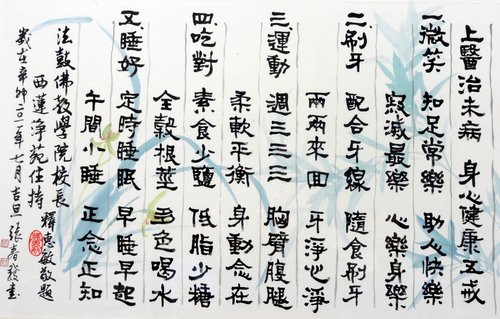 上醫治未病 身心健康五戒
一微笑 知足常樂 助人快樂
寂滅最樂 心樂身樂
二刷牙 配合牙線 隨食刷牙
兩兩來回 牙淨心淨
三運動 週三三三 胸臂腹腿
柔軟平衡 身動念在
四吃對 素食少鹽 低脂少糖
全穀根莖 多色喝水
五睡好 定時睡眠 早睡早起
午間小睡 正念正知
法鼓佛教學院校長
西蓮淨苑住持 釋惠敏敬題
歲在辛卯二〇一一年七月吉旦 張春發書